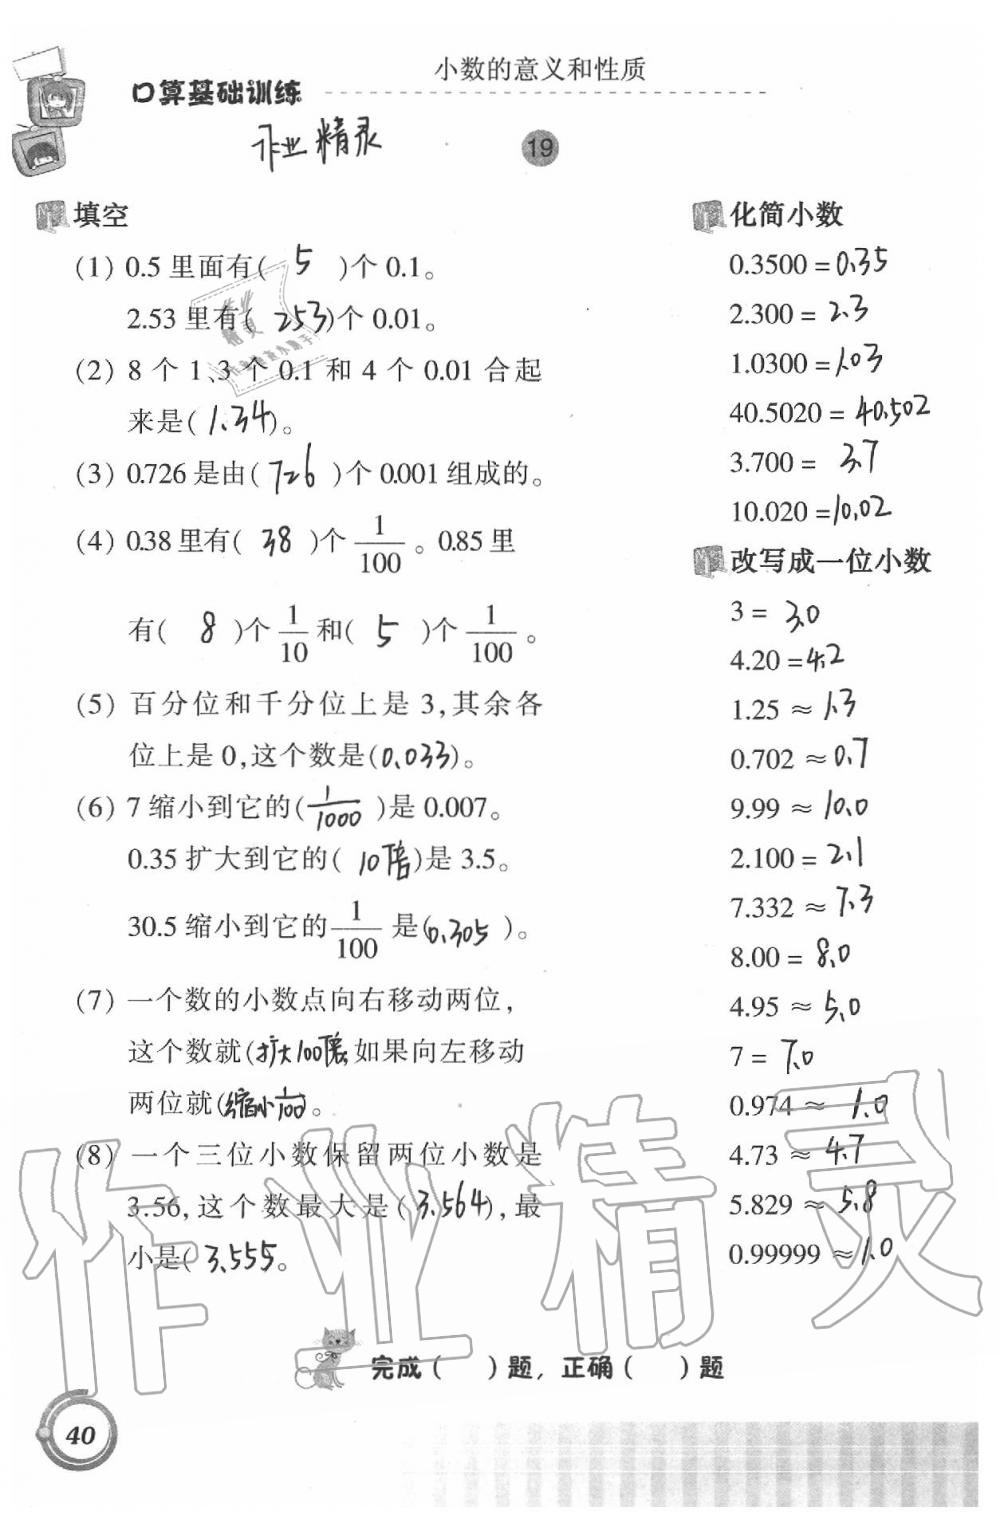 小数的意义和性质
口算基础训练
作业精灵
19
填空
(1) 0.5里面有( 5 )个0.1。
2.53里有( 253 )个0.01。
(2) 8个1、3个0.1和4个0.01合起
来是( 1.34 )。
(3) 0.726是由( 726 )个0.001组成的。
(4) 0.38里有( 38 )个1/100。0.85里
有( 8 )个1/10和( 5 )个1/100。
(5) 百分位和千分位上是3,其余各
位上是0,这个数是(0.033)。
(6) 7缩小到它的( 1/1000 )是0.007。
0.35扩大到它的( 10倍 )是3.5。
30.5缩小到它的1/100是(0.305 )。
(7) 一个数的小数点向右移动两位,
这个数就(扩大100倍),如果向左移动
两位就(缩小1/100)。
(8) 一个三位小数保留两位小数是
3.56,这个数最大是( 3.564 ),最
小是( 3.555。
化简小数
0.3500 = 0.35
2.300 = 2.3
1.0300 = 1.03
40.5020 = 40.502
3.700 = 3.7
10.020 = 10.02
改写成一位小数
3 = 3.0
4.20 = 4.2
1.25 ≈ 1.3
0.702 ≈ 0.7
9.99 ≈ 10.0
2.100 = 2.1
7.332 ≈ 7.3
8.00 = 8.0
4.95 ≈ 5.0
7 = 7.0
0.974 ≈ 1.0
4.73 ≈ 4.7
5.829 ≈ 5.8
0.99999 ≈ 1.0
作业精灵
完成( )题,正确( )题
40